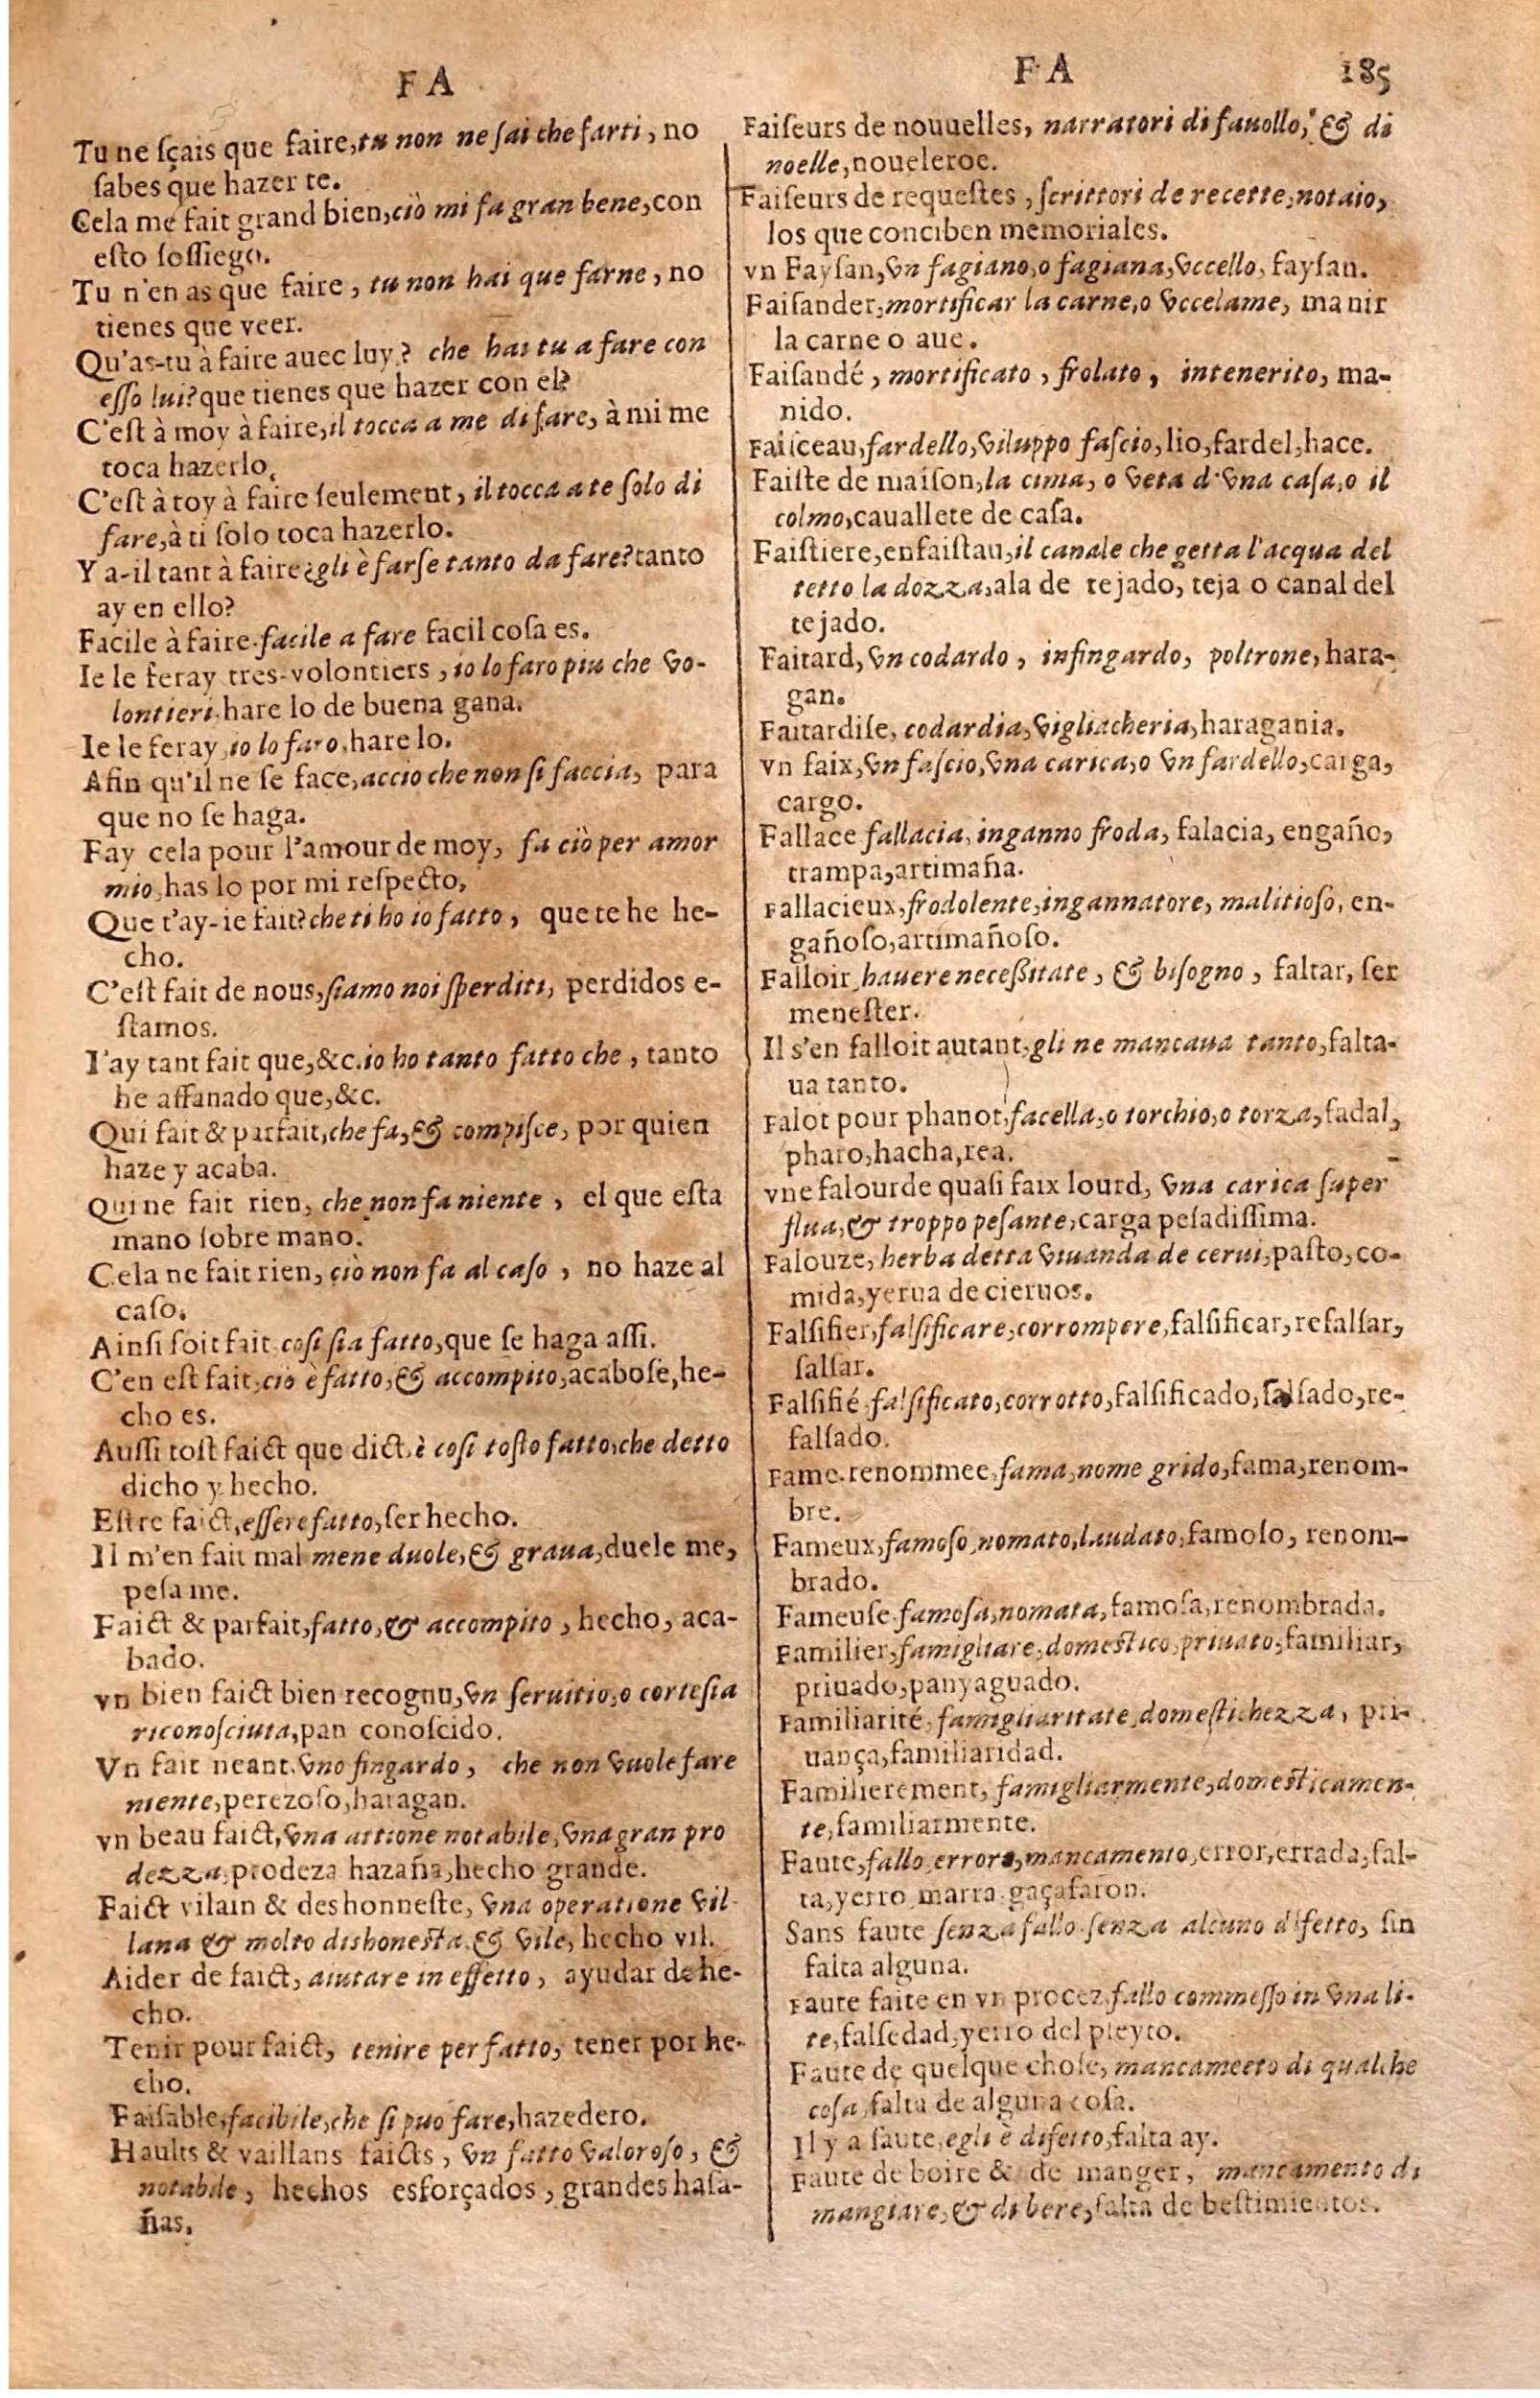 FA
Tu ne sçais que faire, tu non ne sai che farti, no
sabes que hazer te.
Cela me fait grand bien, ciò mi fa gran bene, con
esto sossiego.
Tu n'en as que faire, tu non hai que farne, no
tienes que veer.
Qu'as-tu à faire auec luy? che hai tu a fare con
esso lui? que tienes que hazer con el?
C'est à moy à faire, il tocca a me di fare, à mi me
toca hazerlo.
C'est à toy à faire seulement, il tocca a te solo di
fare, à ti solo toca hazerlo.
Y a-il tant à faire? gli è farse tanto da fare? tanto
ay en ello?
Facile à faire. facile a fare facil cosa es.
Ie le feray tres-volontiers, io lo faro piu che vo-
lontieri. hare lo de buena gana.
Ie le feray, io lo faro, hare lo.
Afin qu'il ne se face, accio che non si faccia, para
que no se haga.
Fay cela pour l'amour de moy, fa ciò per amor
mio, has lo por mi respecto,
Que t'ay-ie fait? che ti ho io fatto, que te he he-
cho.
C'est fait de nous, siamo noi sperditi, perdidos e-
stamos.
I'ay tant fait que, &c. io ho tanto fatto che, tanto
he affanado que, &c.
Qui fait & parfait, che fa, & compisce, por quien
haze y acaba.
Qui ne fait rien, che non fa niente, el que esta
mano sobre mano.
Cela ne fait rien, ciò non fa al caso, no haze al
caso.
Ainsi soit fait. cosi sia fatto, que se haga assi.
C'en est fait, cio è fatto, & accompito, acabose, he-
cho es.
Aussi tost faict que dict. è cosi tosto fatto, che detto
dicho y hecho.
Estre faict, essere fatto, ser hecho.
Il m'en fait mal mene duole, & graua, duele me,
pesa me.
Faict & parfait, fatto, & accompito, hecho, aca-
bado.
vn bien faict bien recognu, vn seruitio, o cortesia
riconosciuta, pan conoscido.
Vn fait neant. vno fingardo, che non vuole fare
niente, perezoso, haragan.
vn beau faict, vna attione notabile, vna gran pro
dezza, prodeza hazaña, hecho grande.
Faict vilain & deshonneste, vna operatione vil-
lana & molto dishonesta. & vile, hecho vil.
Aider de faict, aiutare in effetto, ayudar de he-
cho.
Tenir pour faict, tenire per fatto, tener por he-
cho.
Faisable, facibile, che si puo fare, hazedero.
Haults & vaillans faicts, vn fatto valoroso, &
notabile, hechos esforçados, grandes hasa-
ñas.
FA 185
Faiseurs de nouuelles, narratori di fauollo, & di
noelle, noueleroe.
Faiseurs de requestes, scrittori de recette, notaio,
los que conciben memoriales.
vn Faysan, vn fagiano, o fagiana, vccello, faysan.
Faisander, mortificar la carne, o vccelame, manir
la carne o aue.
Faisandé, mortificato, frolato, intenerito, ma-
nido.
Faisceau, fardello, viluppo fascio, lio, fardel, hace.
Faiste de maison, la cima, o veta d'vna casa, o il
colmo, cauallete de casa.
Faistiere, enfaistau, il canale che getta l'acqua del
tetto la dozza, ala de tejado, teja o canal del
tejado.
Faitard, vn codardo, infingardo, poltrone, hara-
gan.
Faitardise, codardia, vigliacheria, haragania.
vn faix, vn fascio, vna carica, o vn fardello, carga,
cargo.
Fallace fallacia, inganno froda, falacia, engaño,
trampa, artimaña.
Fallacieux, frodolente, ingannatore, malitioso, en-
gañoso, artimañoso.
Falloir, hauere necessitate, & bisogno, faltar, ser
menester.
Il s'en falloit autant, gli ne mancaua tanto, falta-
ua tanto.
Falot pour phanot, facella, o torchio, o torza, fadal,
pharo, hacha, rea.
vne falourde quasi faix lourd, vna carica super
flua, & troppo pesante, carga pesadissima.
Falouze, herba detta viuanda de cerui, pasto, co-
mida, yerua de cieruos.
Falsifier, falsificare, corrompere, falsificar, refalsar,
falsar.
Falsifié falsificato, corrotto, falsificado, falsado, re-
falsado.
Fame. renommee, fama, nome grido, fama, renom-
bre.
Fameux, famoso, nomato, laudato, famoso, renom-
brado.
Fameuse famosa, nomata, famosa, renombrada.
Familier, famigliare, domestico, priuato, familiar,
priuado, panyaguado.
Familiarité, famigliaritate, domestichezza, pri-
uança, familiaridad.
Familierement, famigliarmente, domesticamen-
te, familiarmente.
Faute, fallo, errore, mancamento, error, errada, fal-
ta, yerro, marra. gaçafaton.
Sans faute senza fallo senza alcuno difetto, sin
falta alguna.
Faute faite en vn procez, fallo commesso in vna li-
te, falsedad, yerro del pleyto.
Faute de quelque chose, mancameeto di qualche
cosa, falta de alguna cosa.
Il y a faute, egli è difetto, falta ay.
Faute de boire & de manger, mancamento di
mangiare, & di bere, falta de bestimientos.